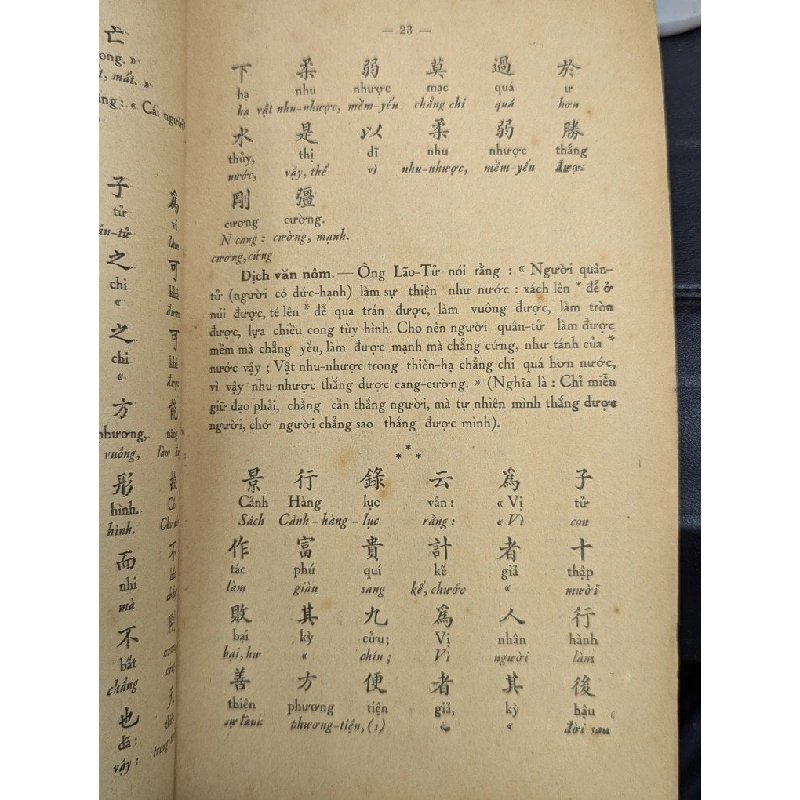 — 23 —
下 柔 弱 莫 過 於
hạ nhu nhược mạc quá ư
hạ vật nhu-nhược, mềm-yếu chẳng chi quá hơn
水 是 以 柔 弱 勝
thủy, thị dĩ nhu nhược thắng
nước, vậy, thế vì nhu-nhược, mềm-yếu được
剛 彊
cương cường.
N cang : cường, mạnh.
cương, cứng
Dịch văn nôm. — Ông Lão-Tử nói rằng : « Người quân-
tử (người có đức-hạnh) làm sự thiện như nước : xách lên * để ở
núi được, té lên * để qua trán được, làm vuông được, làm tròn
được, lựa chiều cong tùy hình. Cho nên người quân-tử làm được
mềm mà chẳng yếu, làm được mạnh mà chẳng cứng, như tánh của *
nước vậy ; Vật nhu-nhược trong thiên-hạ chẳng chi quá hơn nước,
vì vậy nhu-nhược thắng được cang-cường. » (Nghĩa là : Chỉ miễn
giữ đạo phải, chẳng cần thắng người, mà tự nhiên mình thắng được
người, chớ người chẳng sao thắng được mình).
* * *
景 行 錄 云 爲 子
Cảnh Hàng lục vân : « Vị tử
Sách Cảnh-hàng-lục rằng : « Vì con
作 富 貴 計 者 十
tác phú quí kế giả thập
làm giàu sang kế, chước « mười
敗 其 九 爲 人 行
bại kỳ cửu ; Vị nhân hành
bại, hư « chín ; Vì người làm
善 方 便 者 其 後
thiện phương tiện giả, kỳ hậu
sự lành phương-tiện, (1) « « đời sau
亡
ong. »
mất. »
子
tử
之
chi
«
之
chi
«
方
phương,
vuông,
形
hình.
hình.
而
nhi
mà
不
bất
chẳng
也
dã :
vậy :
爲
vi
làm
可
khả
được
可
khả
được
能
不